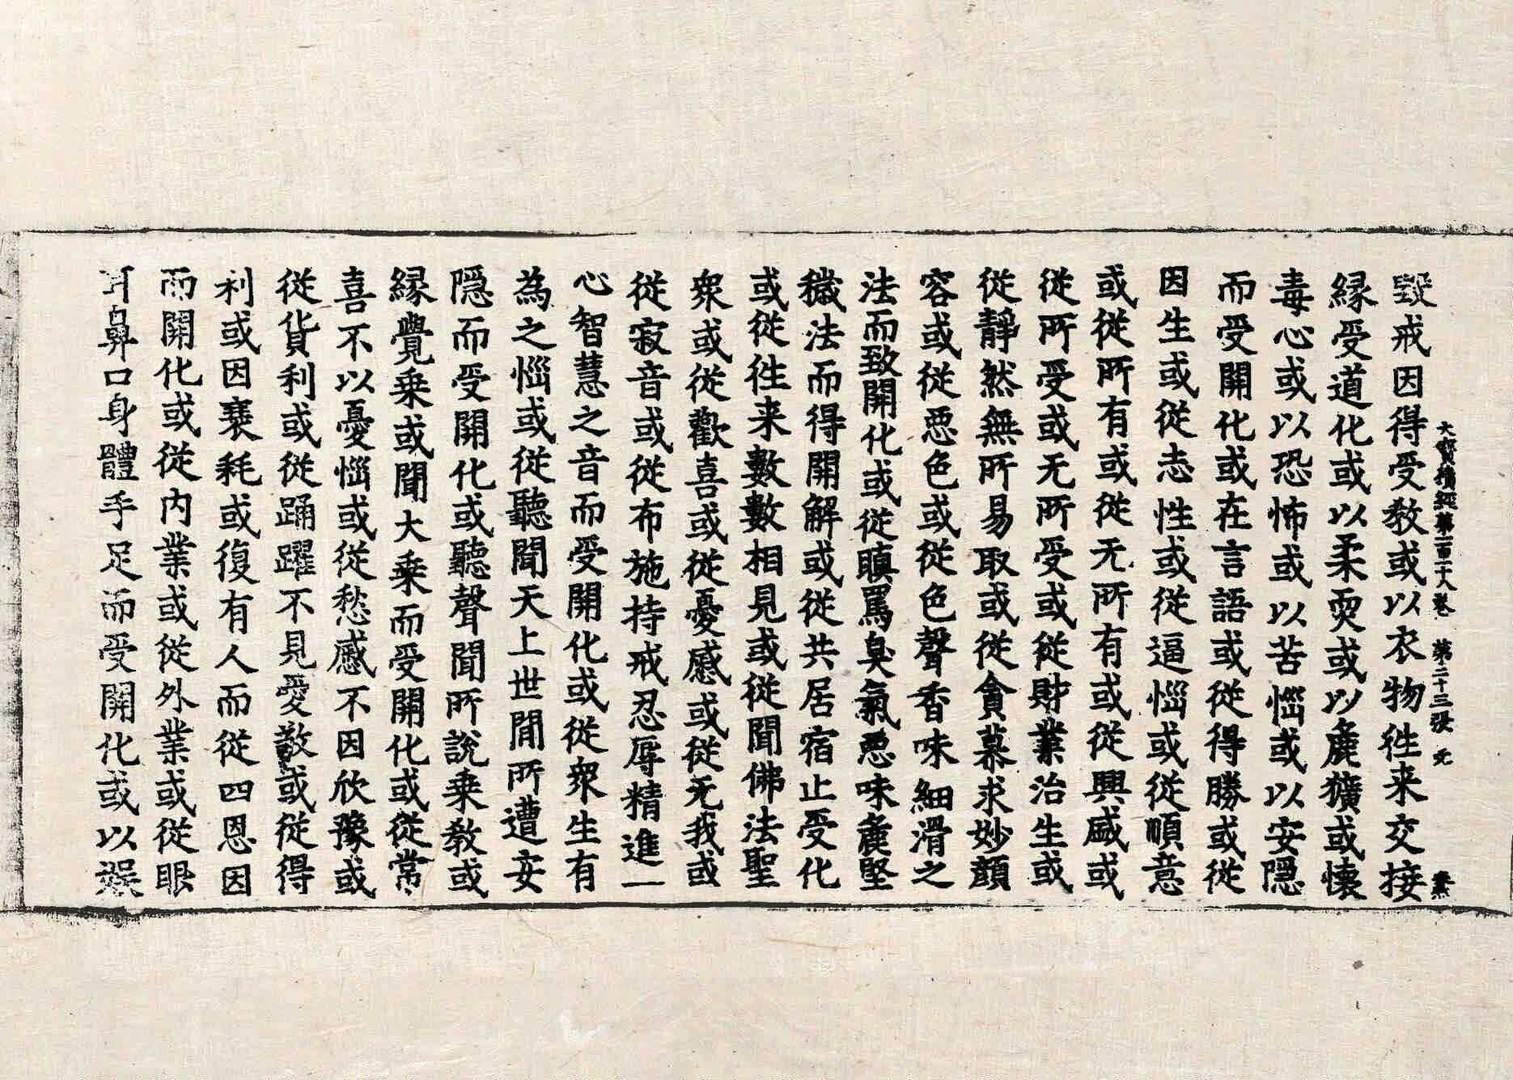 大寶積經第一百一十八卷 第二十三張 乃
毀戒因得受教或以衣物往来交接
縁受道化或以柔耎或以麁獷或懐
毒心或以恐怖或以苦惱或以安隱
而受開化或在言語或從得勝或從
因生或從志性或從逼惱或從順意
或從所有或從无所有或從興盛或
從所受或无所受或從財業治生或
從靜然無所易取或從貪慕求妙顔
容或從惡色或從色聲香味細滑之
法而致開化或從瞋罵臭氣惡味麁堅
穢法而得開解或從共居宿止受化
或從往来數數相見或從聞佛法聖
衆或從歡喜或從憂慼或從无我或
從寂音或從布施持戒忍辱精進一
心智慧之音而受開化或從衆生有
為之惱或從聽聞天上世間所遭安
隱而受開化或聽聲聞所說乗教或
縁覺乗或聞大乗而受開化或從常
喜不以憂惱或從愁慼不因欣豫或
從貨利或從踊躍不見愛敬或從得
利或因衰耗或復有人而從四恩因
而開化或從内業或從外業或從眼
耳鼻口身體手足而受開化或以誤